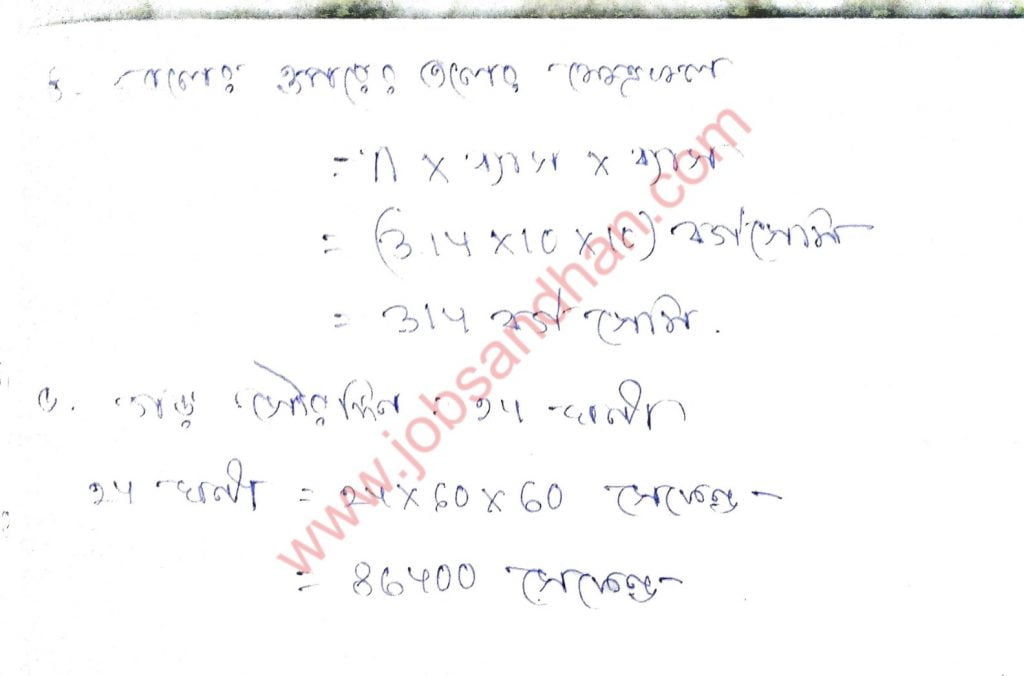 ৪. বলের উপরের তলের ক্ষেত্রফল
= π × ব্যাস × ব্যাস
= (3.14 × 10 × 10) বর্গ সেমি
= 314 বর্গ সেমি.
৫. গড় সৌরদিন = 24 ঘন্টা
24 ঘন্টা = 24 × 60 × 60 সেকেন্ড
= 86400 সেকেন্ড
www.jobsandhan.com